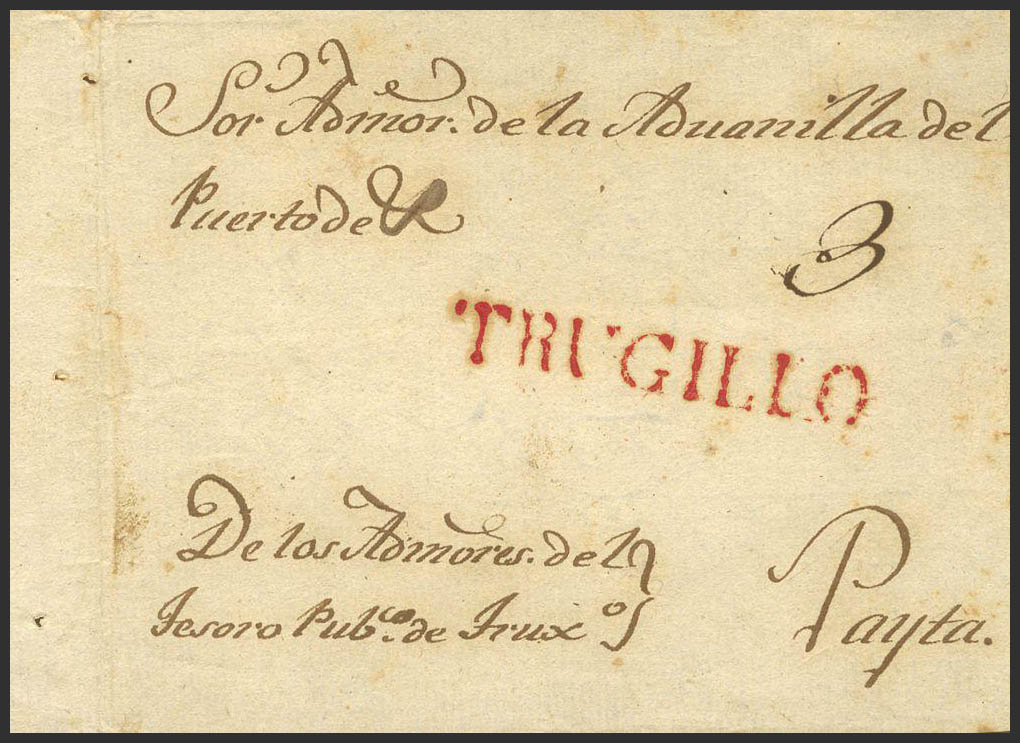 Sor Admor. de la Aduanilla del
Puerto de
3
TRUGILLO
De los Admores. del
Tesoro Pub.co de Trux.o
Payta.